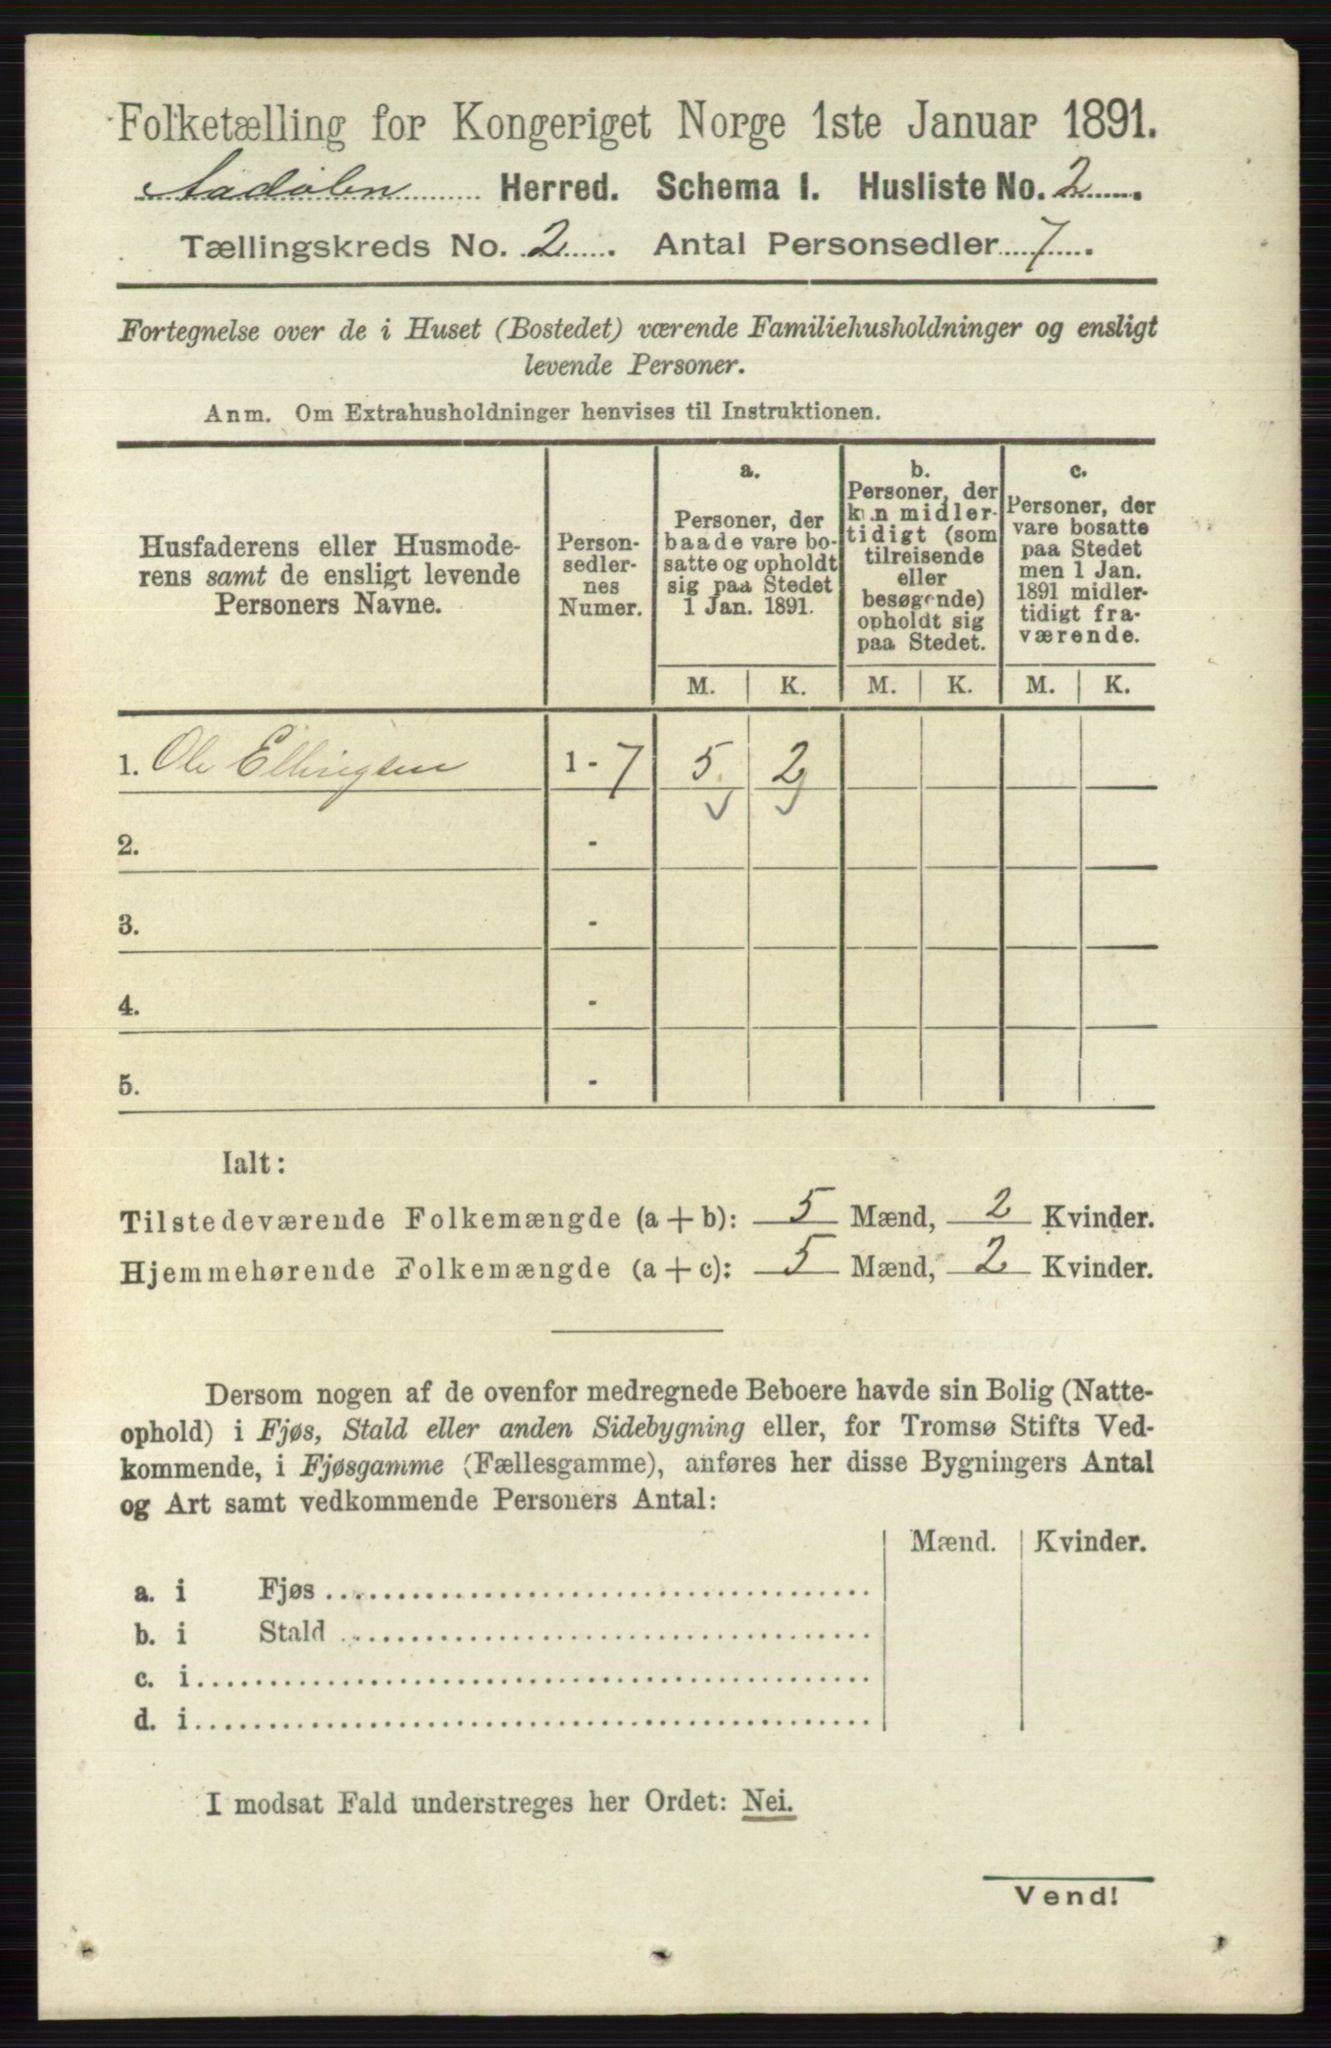 Folketælling for Kongeriget Norge 1ste Januar 1891.
Aadalen Herred. Schema I. Husliste No. 2
Tællingskreds No. 2. Antal Personsedler 7.
Fortegnelse over de i Huset (Bostedet) værende Familiehusholdninger og ensligt
levende Personer.
Anm. Om Extrahusholdninger henvises til Instruktionen.
Husfaderens eller Husmode-
rens samt de ensligt levende
Personers Navne.
Person-
sedler-
nes
Numer.
a.
Personer, der
baade vare bo-
satte og opholdt
sig paa Stedet
1 Jan. 1891.
b.
Personer, der
kun midler-
tidigt (som
tilreisende
eller
besøgende)
opholdt sig
paa Stedet.
c.
Personer, der
vare bosatte
paa Stedet
men 1 Jan.
1891 midler-
tidigt fra-
værende.
M. K. M. K. M. K.
1. Ole Ellingsen 1 - 7 5 2
2. -
3. -
4. -
5. -
Ialt:
Tilstedeværende Folkemængde (a + b): 5 Mænd, 2 Kvinder.
Hjemmehørende Folkemængde (a + c): 5 Mænd, 2 Kvinder.
Dersom nogen af de ovenfor medregnede Beboere havde sin Bolig (Natte-
ophold) i Fjøs, Stald eller anden Sidebygning eller, for Tromsø Stifts Ved-
kommende, i Fjøsgamme (Fællesgamme), anføres her disse Bygningers Antal
og Art samt vedkommende Personers Antal:
Mænd. Kvinder.
a. i Fjøs
b. i Stald
c. i
d. i
I modsat Fald understreges her Ordet: Nei.
Vend!